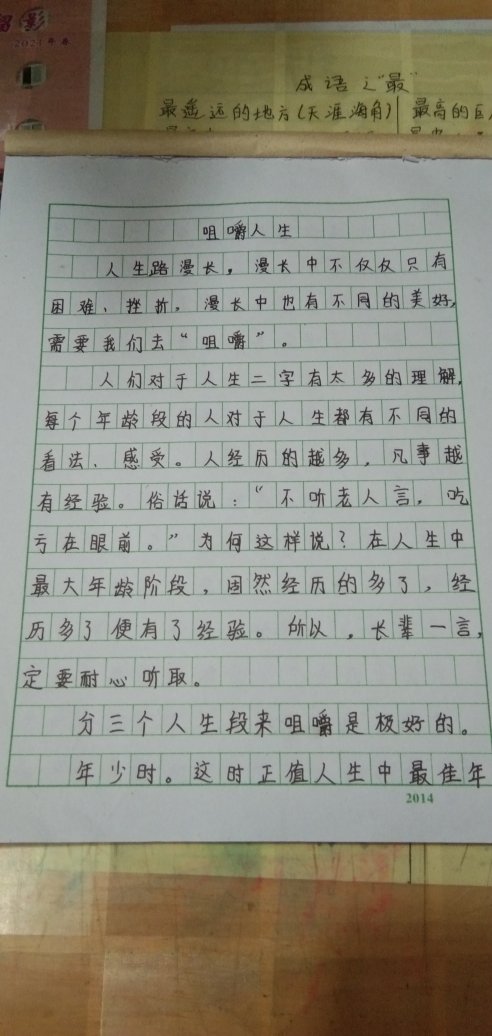 影
2021年春
成语之"最"
最遥远的地方(天涯海角) 最高的巨
咀嚼人生
人生路漫长,漫长中不仅仅只有
困难、挫折,漫长中也有不同的美好,
需要我们去“咀嚼”。
人们对于人生二字有太多的理解,
每个年龄段的人对于人生都有不同的
看法、感受。人经历的越多,凡事越
有经验。俗话说:“不听老人言,吃
亏在眼前。”为何这样说?在人生中
最大年龄阶段,固然经历的多了,经
历多了便有了经验。所以,长辈一言,
定要耐心听取。
分三个人生段来咀嚼是极好的。
年少时。这时正值人生中最佳年
2014